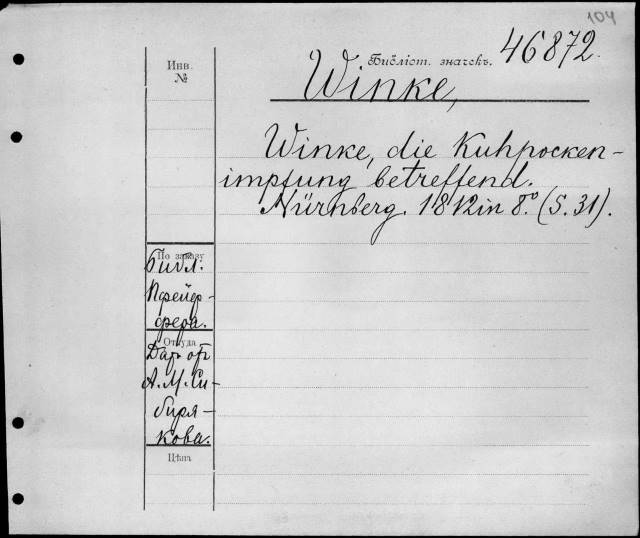 104
Инв.
№
Библіот. значекъ. 46872.
Winke,
Winke, die Kuhpocken-
impfung betreffend.
Nürnberg. 1812 in 8.° (S. 31).
По заказу
Библ.
Пфейф-
фера.
Откуда
Дар от
А. М. Си-
биря-
кова.
Цѣна